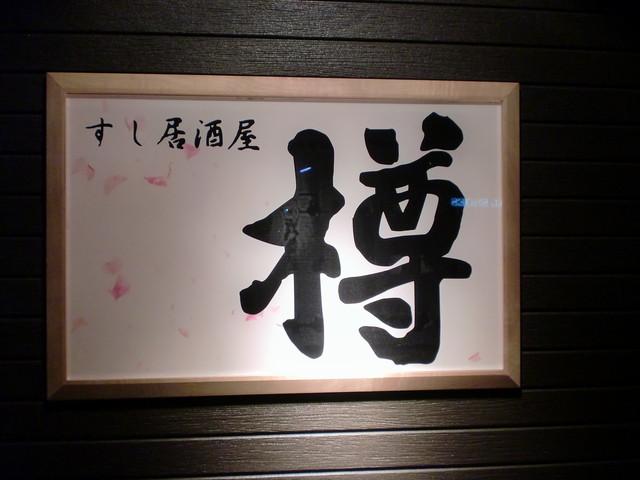 すし居酒屋
樽